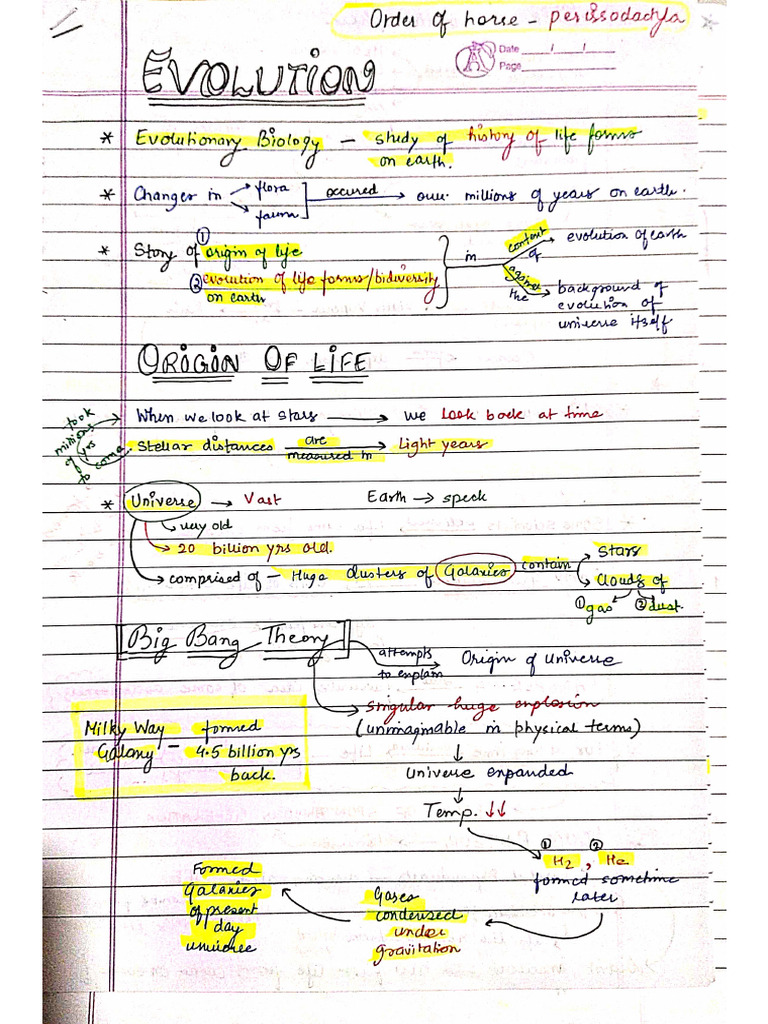 Order of horse - perissodactyla
Date / /
Page
EVOLUTION
* Evolutionary Biology - study of history of life forms
on earth.
* Changes in flora
fauna
occured → over millions of years on earth.
* Story of ① origin of life
② evolution of life forms/bidiversity
on earth
in
context of evolution of earth
against the background of
evolution of
universe itself
ORIGIN OF LIFE
When we look at stars → we look back at time
took
millions
of yrs
to come
Stellar distances are
measured in → Light years
* Universe → Vast Earth → speck
very old
→ 20 billion yrs old.
→ comprised of - Huge clusters of Galaxies contain
Stars
Clouds of
① gas ② dust.
Big Bang Theory
attempts
to explain → Origin of Universe
→ Singular huge explosion
(unimaginable in physical terms)
Milky Way formed
Galaxy - 4.5 billion yrs
back.
↓
Universe expanded
↓
Temp. ↓↓
① H2 , ② He
formed sometime
later
Gases
condensed
under
gravitation
Formed
Galaxies
of present
day
universe